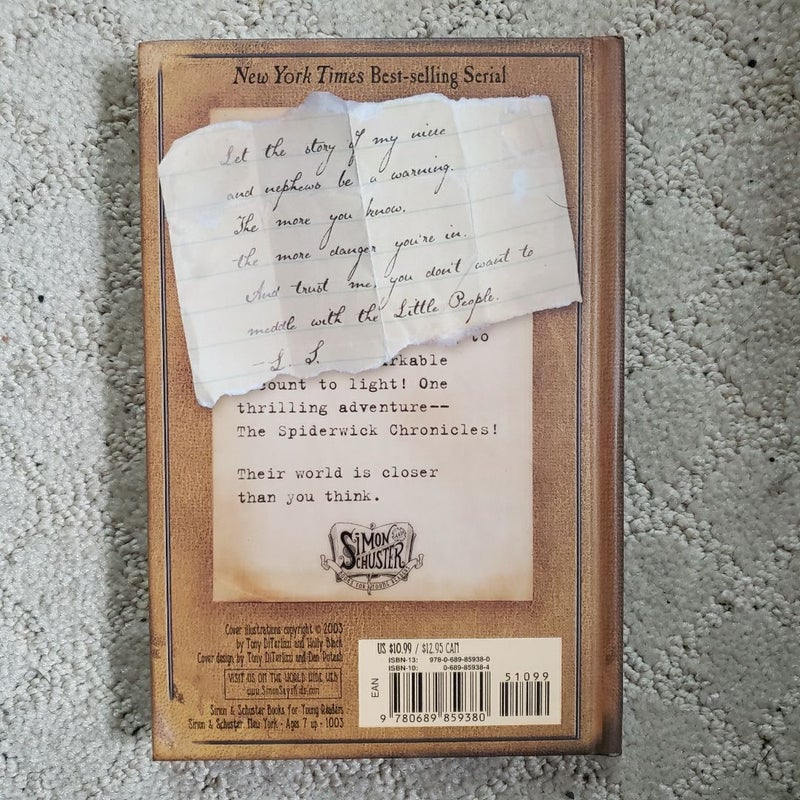 New York Times Best-selling Serial
Let the story of my niece
and nephews be a warning.
The more you know,
the more danger you're in.
And trust me, you don't want to
meddle with the Little People.
—L. S.
to
arkable
count to light! One
thrilling adventure--
The Spiderwick Chronicles!
Their world is closer
than you think.
SIMON AND SCHUSTER
BOOKS FOR YOUNG READERS
Cover illustrations copyright © 2003
by Tony DiTerlizzi and Holly Black
Cover design by Tony DiTerlizzi and Dan Potash
VISIT US ON THE WORLD WIDE WEB
www.SimonSaysKids.com
Simon & Schuster Books for Young Readers
Simon & Schuster, New York - Ages 7 up - 1003
US $10.99 / $12.95 CAN
ISBN-13: 978-0-689-85938-0
ISBN-10: 0-689-85938-4
51099
EAN
9 780689 859380